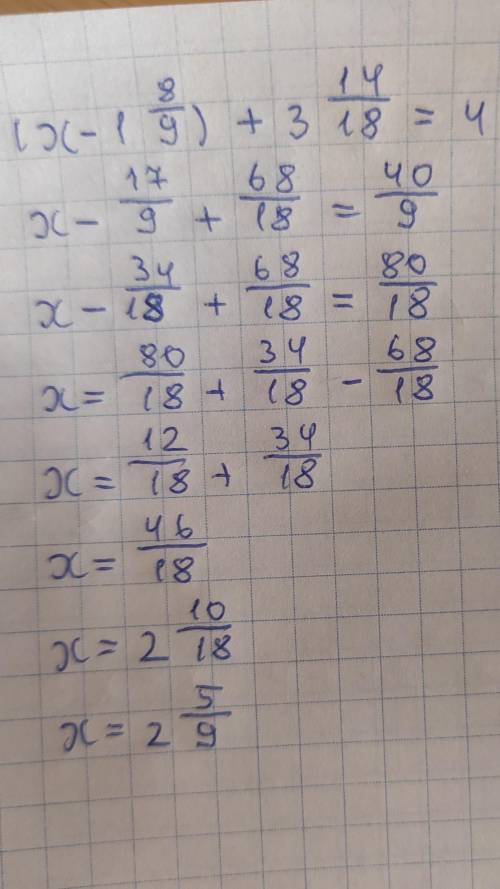 (x - 1 8/9) + 3 14/18 = 4
x - 17/9 + 68/18 = 40/9
x - 34/18 + 68/18 = 80/18
x = 80/18 + 34/18 - 68/18
x = 12/18 + 34/18
x = 46/18
x = 2 10/18
x = 2 5/9